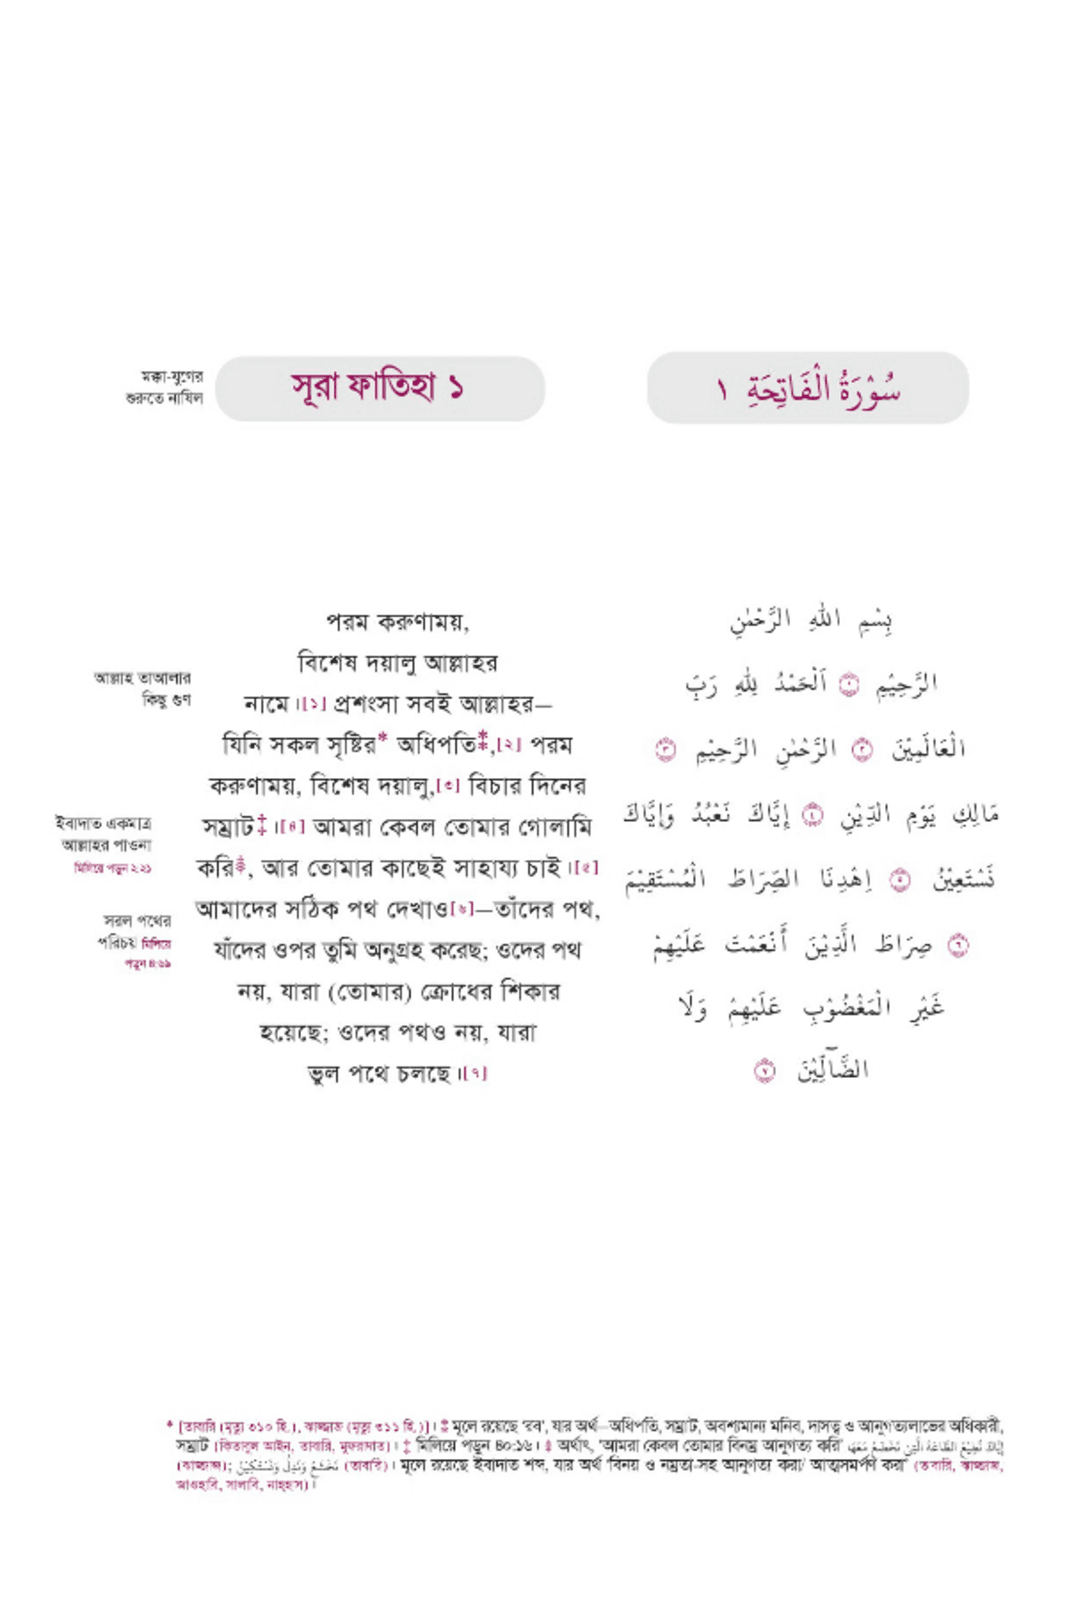 মক্কা-যুগের
শুরুতে নাযিল
সূরা ফাতিহা ১
سُوْرَةُ الْفَاتِحَةِ ١
আল্লাহ তাআলার
কিছু গুণ
ইবাদাত একমাত্র
আল্লাহর পাওনা
মিলিয়ে পড়ুন ২:২১
সরল পথের
পরিচয় মিলিয়ে
পড়ুন ৪:৬৯
পরম করুণাময়,
বিশেষ দয়ালু আল্লাহর
নামে।[১] প্রশংসা সবই আল্লাহর—
যিনি সকল সৃষ্টির* অধিপতি⁑,[২] পরম
করুণাময়, বিশেষ দয়ালু,[৩] বিচার দিনের
সম্রাট‡।[৪] আমরা কেবল তোমার গোলামি
করি, আর তোমার কাছেই সাহায্য চাই।[৫]
আমাদের সঠিক পথ দেখাও[৬]—তাঁদের পথ,
যাঁদের ওপর তুমি অনুগ্রহ করেছ; ওদের পথ
নয়, যারা (তোমার) ক্রোধের শিকার
হয়েছে; ওদের পথও নয়, যারা
ভুল পথে চলছে।[৭]
بِسْمِ اللهِ الرَّحْمٰنِ
الرَّحِيْمِ ١ اَلْحَمْدُ لِلهِ رَبِّ
الْعَالَمِيْنَ ٢ الرَّحْمٰنِ الرَّحِيْمِ ٣
مَالِكِ يَوْمِ الدِّيْنِ ٤ إِيَّاكَ نَعْبُدُ وَإِيَّاكَ
نَسْتَعِيْنُ ٥ اِهْدِنَا الصِّرَاطَ الْمُسْتَقِيْمَ
٦ صِرَاطَ الَّذِيْنَ أَنْعَمْتَ عَلَيْهِمْ
غَيْرِ الْمَغْضُوْبِ عَلَيْهِمْ وَلَا
الضَّآلِّيْنَ ٧
* [তাবারি (মৃত্যু ৩১০ হি.), ঝাজ্জাজ (মৃত্যু ৩১১ হি.)]। ⁑ মূলে রয়েছে 'রব', যার অর্থ—অধিপতি, সম্রাট, অবশ্যমান্য মনিব, দাসত্ব ও আনুগত্যলাভের অধিকারী,
সম্রাট (কিতাবুল আইন, তাবারি, মুফরাদাত)। ‡ মিলিয়ে পড়ুন ৪০:১৬। অর্থাৎ, 'আমরা কেবল তোমার বিনম্র আনুগত্য করি'
(ঝাজ্জাজ); نَخْشَعُ وَنَذِلُّ وَنَسْتَكِيْنُ (তাবারি)। মূলে রয়েছে ইবাদাত শব্দ, যার অর্থ 'বিনয় ও নম্রতা-সহ আনুগত্য করা/ আত্মসমর্পণ করা' (তাবারি, ঝাজ্জাজ,
জাওহারি, সালাবি, নাহ্হাস)।